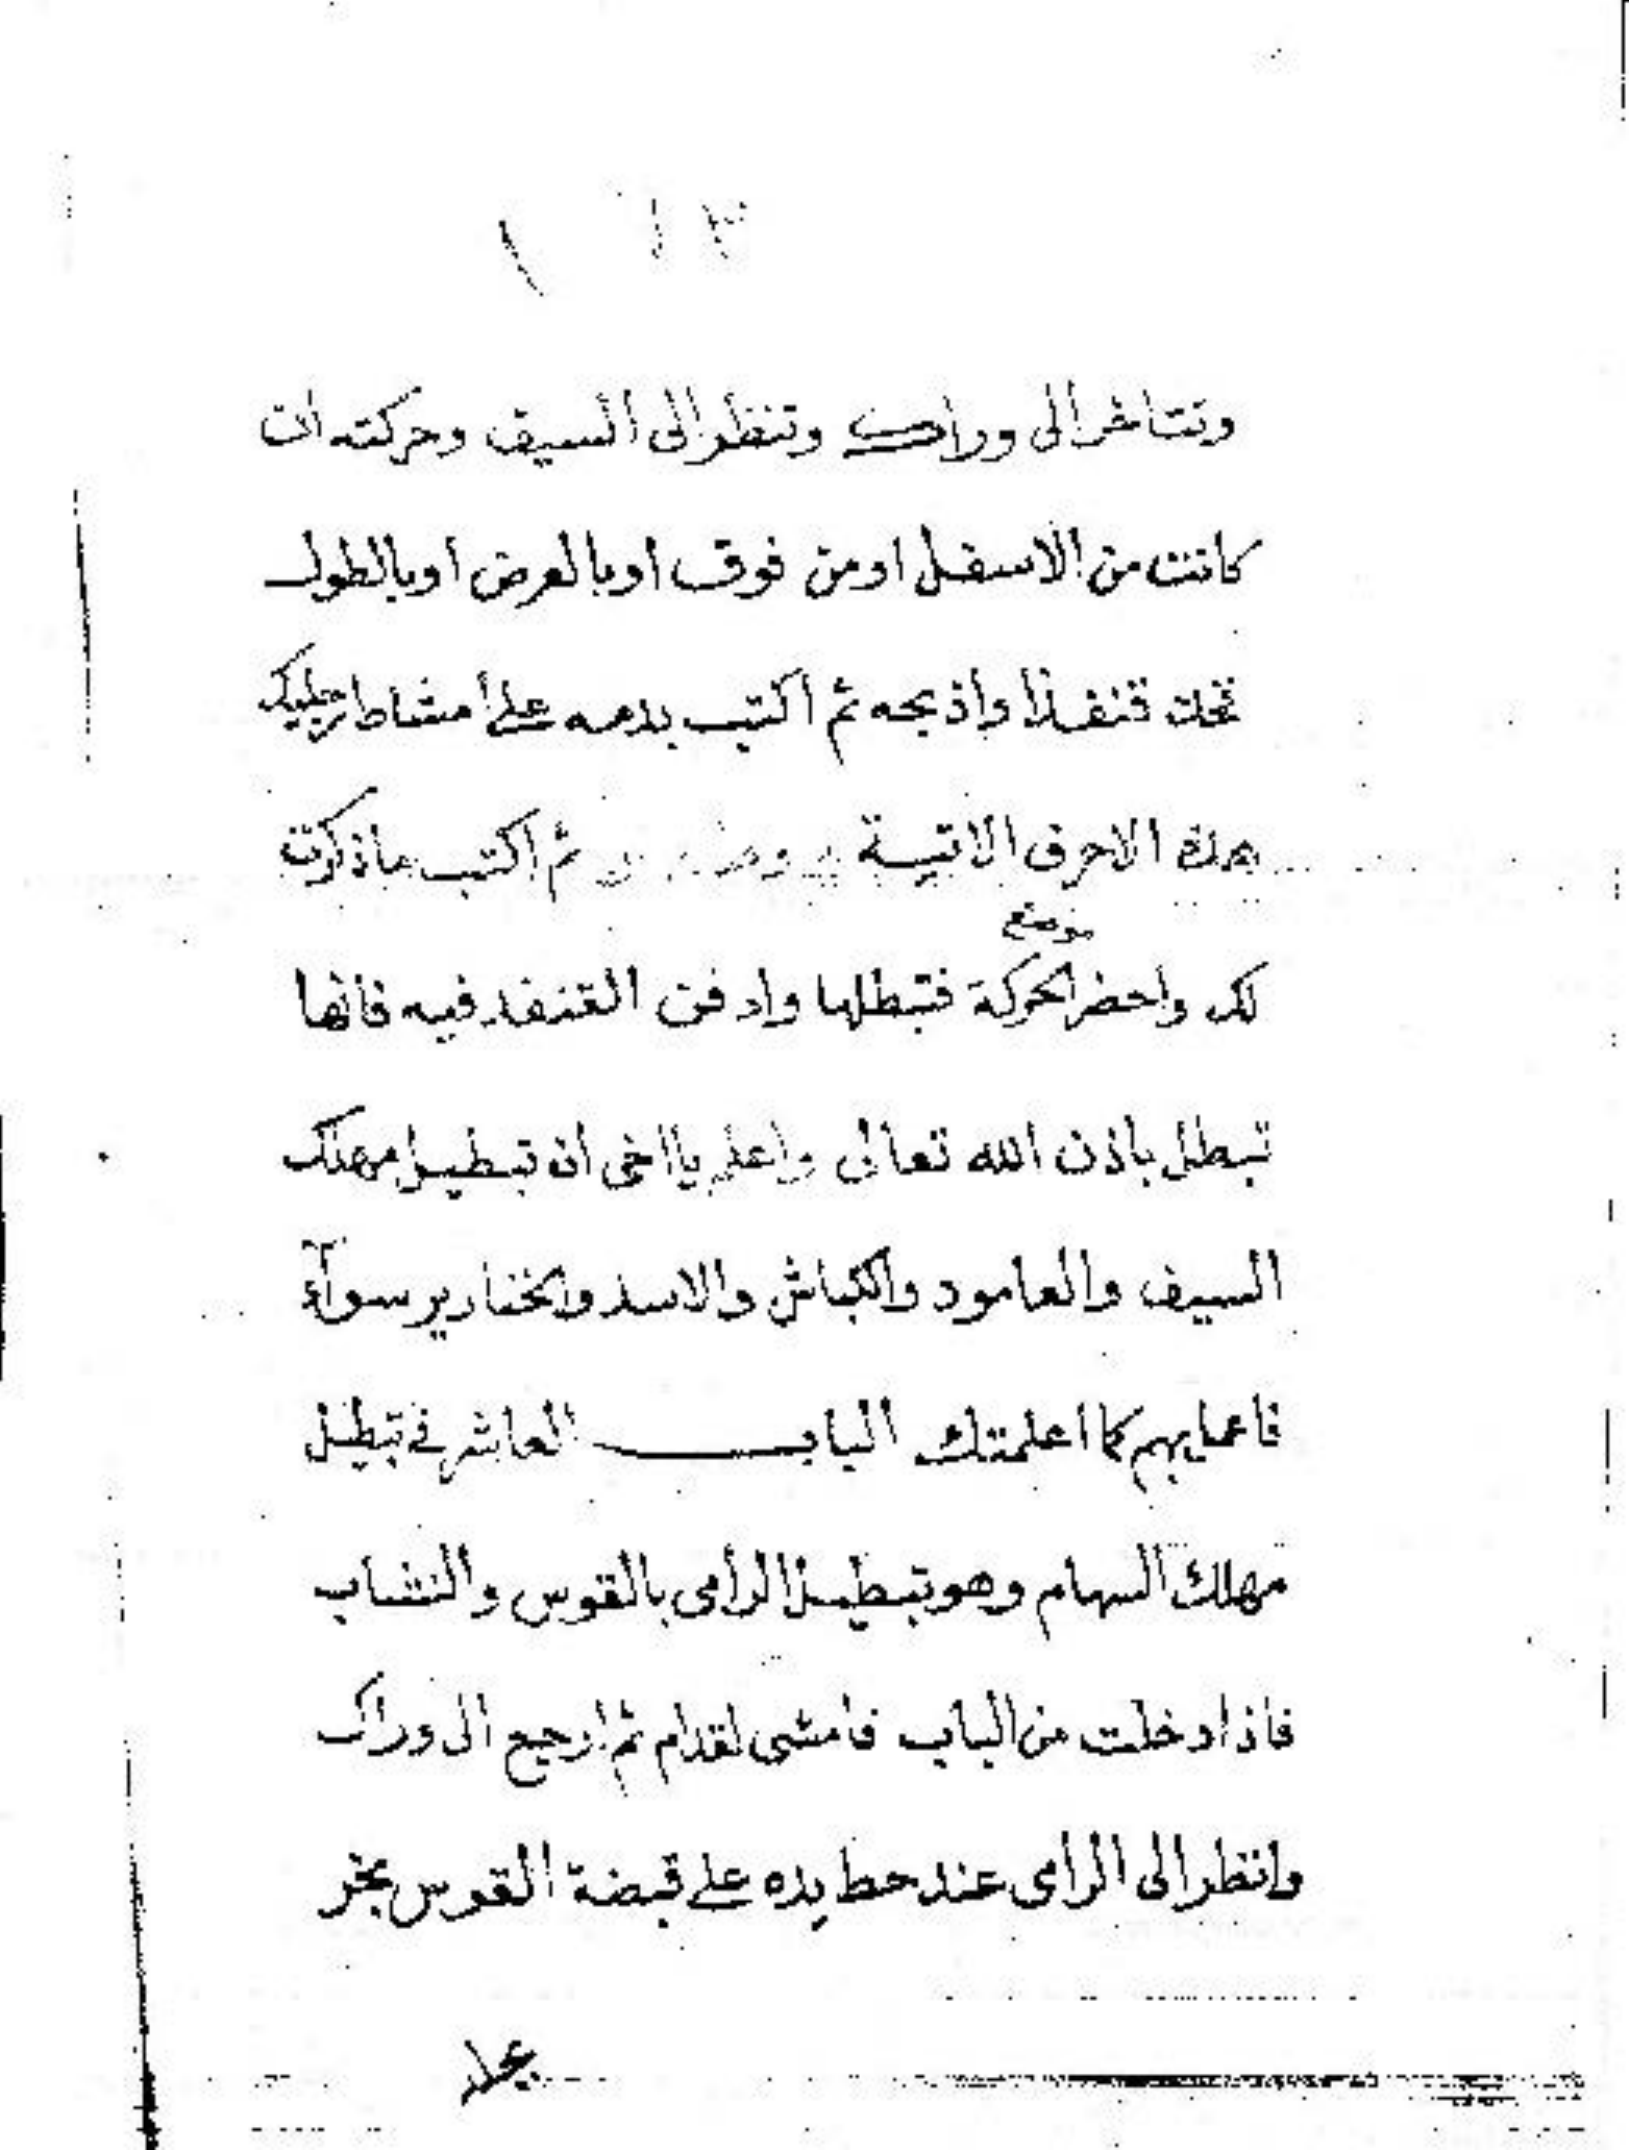 وتتاخر الى وراك وتنظر الى السيف وحركته ان
كانت من الاسفل او من فوق او بالعرض او بالطول
فخذ قنفذا واذبحه ثم اكتب بدمه على امشاط رجليك
هذه الاحرف الاتية ثم اكتب ماذكرت
موضع
لك واحضر الحركة فتبطلها وادفن القنفد فيه فانها
تبطل باذن الله تعالى واعلم يااخى ان تبطيل مهلك
السيف والعامود والكباش والاسد والخنازير سوآء
فاعمل بهم كما اعلمتك البابـــــ العاشر في تبطيل
مهلك السهام وهو تبطيل الرامى بالقوس والنشاب
فاذا دخلت من الباب فامشى لقدام ثم ارجع الى وراك
وانظر الى الرامى عند حط يده على قبضة القوس بخر